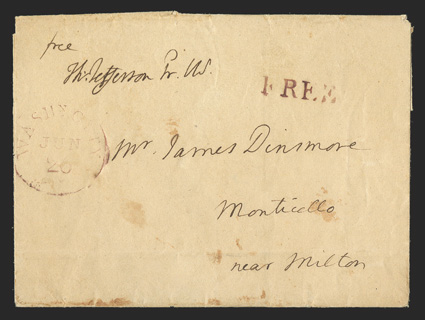 free
Th: Jefferson Pr. US.
FREE
WASHN. CITY
JUN
26
Mr. James Dinsmore
Monticello
near Milton